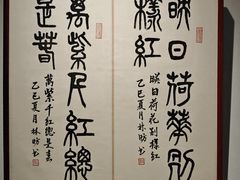 映日荷華別
樣紅
映日荷花别樣紅
乙巳夏月林昉书
萬紫千紅總
是萅
萬紫千紅總是春
乙巳夏月林昉书